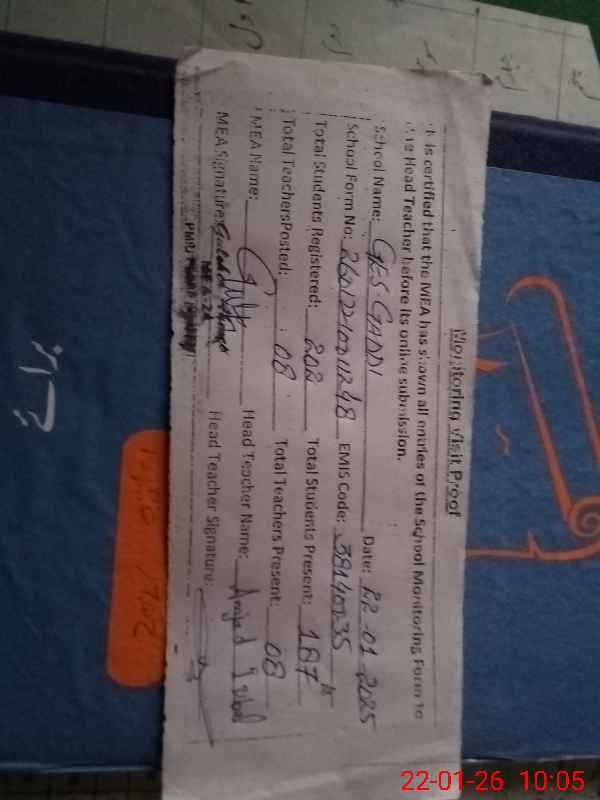 Monitoring Visit Proof
It is certified that the MEA has shown all entries of the School Monitoring Form to
the Head Teacher before its online submission.
School Name: GES GADDI Date: 22-01-2025
School Form No: EMIS Code: 38140235
Total Students Registered: 202 Total Students Present: 187
Total TeachersPosted: 08 Total Teachers Present: 08
MEA Name: Head Teacher Name: Amjad Iqbal
MEA Signature: Head Teacher Signature:
MEA-24
22-01-26 10:05